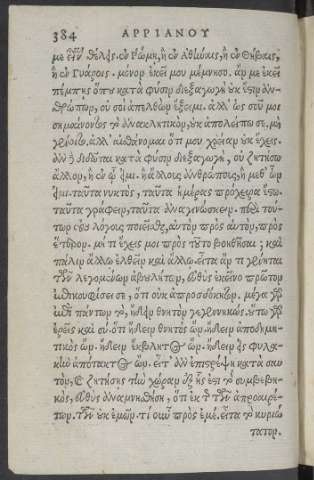 384 ΑΡΡΙΑΝΟΥ
με εἶναι θέλῃς. ἐν Ῥώμῃ, ἢ ἐν Ἀθήναις, ἢ ἐν Θήβαις,
ἢ ἐν Γυάροις. μόνον ἐκεῖ μου μέμνησο. ἄν με ἐκεῖ
πέμπῃς ὅπου κατὰ φύσιν διεξαγωγὴ οὐκ ἔστιν ἀν-
θρώπων, οὐ σοὶ ἀπελθὼν ἔξειμι. ἀλλ' ὡς σοῦ μοι
σημαίνοντος τὸ ἀνακλητικὸν, οὐκ ἀπολείπω σε. μὴ
γένοιτο, ἀλλ' αἰσθάνομαι ὅτι μου χρείαν οὐκ ἔχεις.
ἂν δὲ διδῶται κατὰ φύσιν διεξαγωγὴ, οὐ ζητήσω
ἄλλον, ἢ ἐν ᾧ εἰμι. ἢ ἄλλους ἀνθρώπους, ἢ μεθ' ὧν
εἰμι. ταῦτα νυκτὸς, ταῦτα ἡμέρας πρόχειρα ἔστω.
ταῦτα γράφειν, ταῦτα ἀναγινώσκειν. περὶ τού-
των τοὺς λόγους ποιεῖσθαι, αὐτὸν πρὸς αὑτὸν, πρὸς
ἕτερον. μή τι ἔχεις μοι πρὸς τοῦτο βοηθῆσαι; καὶ
πάλιν ἄλλῳ ἐλθεῖν καὶ ἄλλῳ. εἶτα ἄν τι γένηται
τῶν λεγομένων ἀβουλήτων, εὐθὺς ἐκεῖνο πρῶτον
ἐπικουφίσει σε, ὅτι οὐκ ἀπροσδόκητον. μέγα γὰρ
ἐπὶ πάντων τὸ, ᾔδειν θνητὸν γεγεννηκώς. οὕτω γὰρ
ἐρεῖς καὶ σύ. ὅτι ᾔδειν θνητὸς ὤν. ᾔδειν ἀποδημη-
τικὸς ὤν. ᾔδειν ἔκβλητος ὤν. ᾔδειν εἰς φυλα-
κὴν ἀπότακτος ὤν. εἶτ' ἂν ἐπιστρέψῃ κατὰ σαυ
τὸν, καὶ ζητήσῃς τὴν χώραν ἐξ ἧς ἐστι τὸ συμβεβη-
κὸς, εὐθὺς ἀναμνησθήσῃ, ὅτι ἐκ τῆς τῶν ἀπροαιρέ-
των. τῶν οὐκ ἐμῶν. τί οὖν πρὸς ἐμέ. εἶτα τὸ κυριώ
τατον.